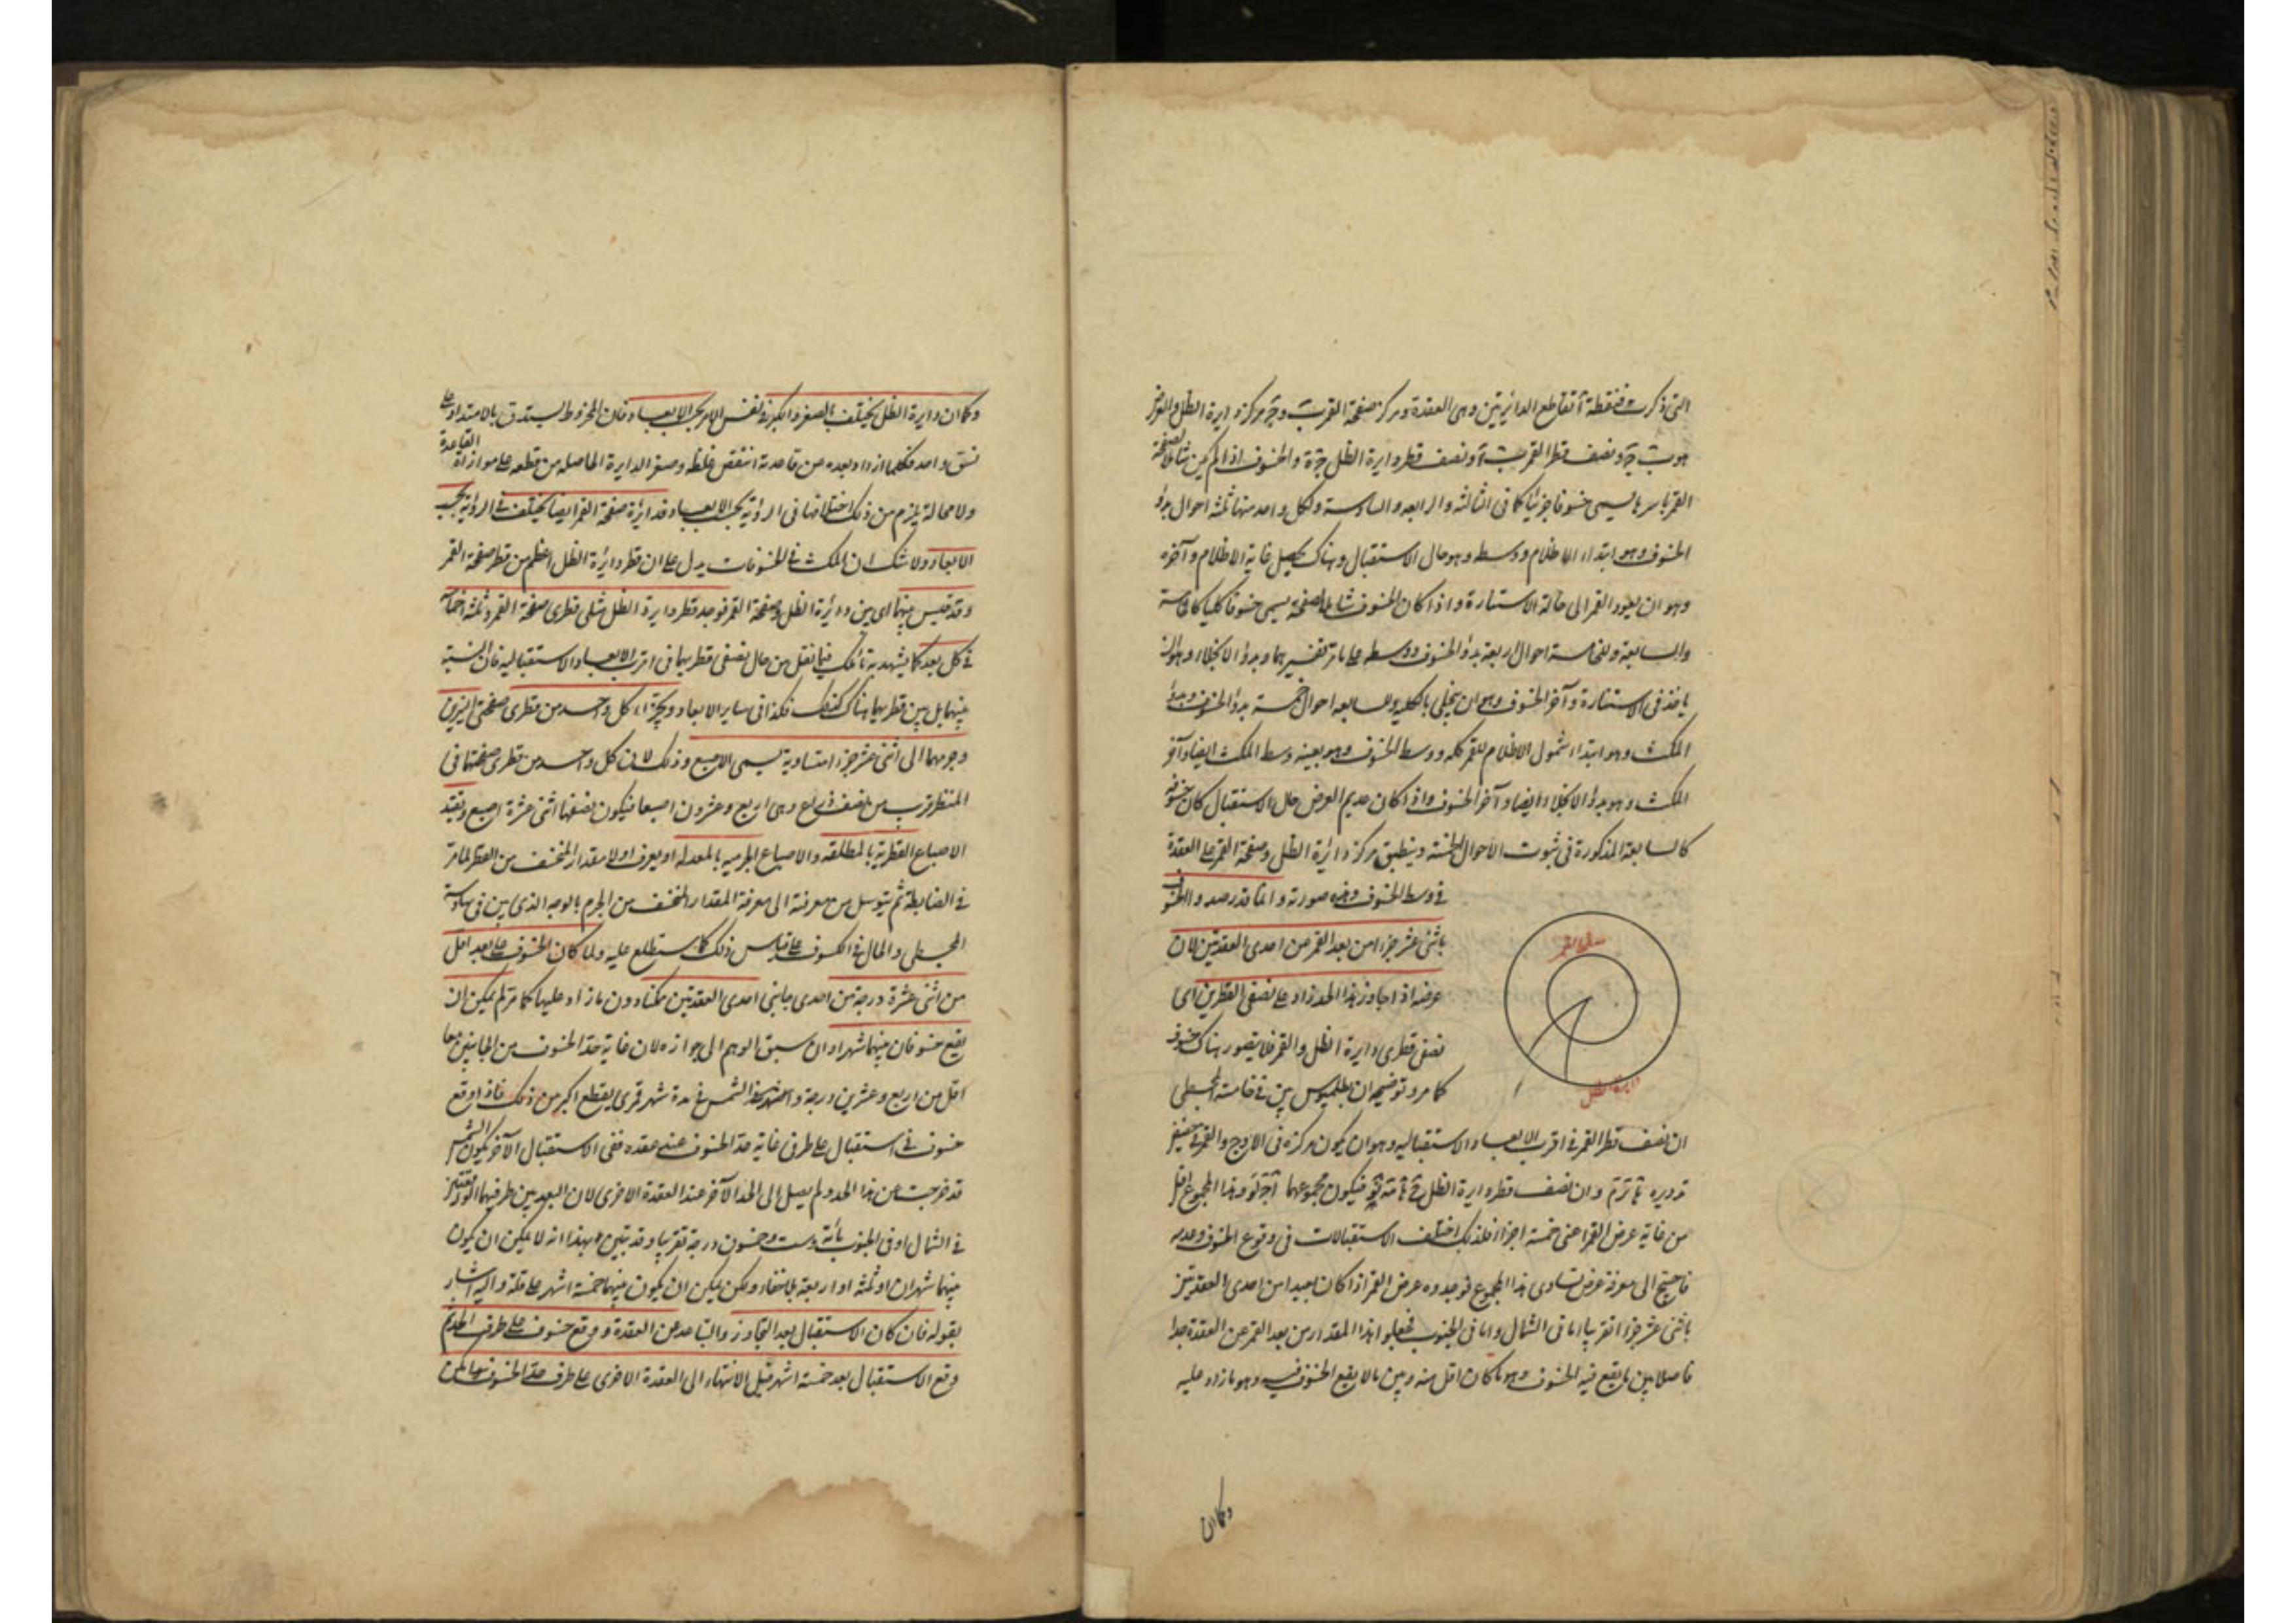 التى ذكرت فنقطة آ تقاطع الدائرتين وهى العقدة ومركز صفحة القمر ب و ج مركز دايرة الظل والعرض
هو ب ج ونصف قطر القمر ونصف قطر دايرة الظل والخسوف اذا لم يكن شاملا لصفحة
القمر باسرها يسمى خسوفا جزئيا كما فى الثالثه والرابعه والسادسة ولكل واحد منها ثلثه احوال بدؤ
الخسوف وهو ابتداء الاظلام ووسطه وهو حالى الاستقبال وهناك يحصل غاية الاظلام وآخره
وهو ان يعود القمر الى حالة الاستنارة واذا كان الخسوف شاملا لصفحته يسمى خسوفا كليا كالخامسة
والسابعة وللخامسة احوال اربعة بدؤ الخسوف ووسطه على ما مر تفسيرهما وبدؤ الانجلاء وهو ان
ياخذ فى الاستنارة وآخر الخسوف وهو ان ينجلى بالكلية وللسابعه احوال خمسة بدؤ الخسوف وبدؤ
المكث وهو ابتداء شمول الاظلام للقمر كله ووسط الخسوف وهو بعينه وسط المكث ايضا وآخر
المكث وهو بدؤ الانجلاء ايضا وآخر الخسوف واذا كان عديم العرض حال الاستقبال كان خسوفه
كالسابعة المذكورة فى ثبوت الاحوال الخمسة وينطبق مركز دائرة الظل وصفحة القمر على العقدة
فى وسط الخسوف وهذه صورته وانما قدر حدود الخسوف
باثنى عشر جزءا من بعد القمر من احدى العقدتين لان
عرضه اذا جاوز هذا الحد زاد على نصفى القطرين اى
نصفى قطرى دايرة الظل والقمر فلا يتصور هناك خسوف
كما مر وتوضيحه ان بطلميوس بين فى خامسة المجسطى
صفحة القمر
دايرة الظل
ان نصف قطر القمر فى اقرب الابعاد الاستقباليه وهو ان يكون مركزه فى الاوج والقمر فى حضيض
تدويره وان نصف قطر دايرة الظل فيكون مجموعهما وهذا المجموع اقل
من غاية عرض القمر اعنى خمسة اجزاء فلذلك اختلف الاستقبالات فى وقوع الخسوف وعدمه
فاحتيج الى معرفة عرض تساوى هذا المجموع فوجدوه عرض القمر اذا كان بعيدا من احدى العقدتين
باثنى عشر جزءا تقريبا اما فى الشمال واما فى الجنوب فجعلوا هذا المقدار من بعد القمر عن العقدة حدا
فاصلا بين ما يقع فيه الخسوف وهو ما كان اقل منه وبين ما لا يقع الخسوف فيه وهو ما زاد عليه
وكما ان
وكما ان دايرة الظل يختلف بالصغر والكبر فى نفس الامر بحسب الابعاد فان المخروط يستدق بالامتداد على
نسق واحد فكلما ازداد بعده من قاعدته انتقص غلظه وصغر الدايرة الحاصله من قطعه على موازاة القاعدة
ولا محالة يلزم من ذلك اختلافها فى الرؤية بحسب الابعاد فدائرة صفحة القمر ايضا يختلف فى الرؤية بحسب
الابعاد ولا شك ان المكث فى الخسوفات يدل على ان قطر دايرة الظل اعظم من قطر صفحة القمر
وقد قيس بينهما اى بين دائرة الظل وصفحة القمر فوجد قطر دايرة الظل مثلى قطرى صفحة القمر وثلثه اخماسه
فى كل بعد كما يشهد به تأملك فيما نقل من حال نصفى قطريهما فى اقرب الابعاد الاستقباليه فان النسبة
بينهما بل بين قطريهما هناك كذلك فكذا فى ساير الابعاد ويجزأ كل واحد من قطرى صفحتى النيرين
وجرمهما الى اثنى عشر جزءا متساوية يسمى الاصبع وذلك لان كل واحد من قطرى صفحتهما فى
المنظر قريب من نصف ذراع وهى اربع وعشرون اصبعا فيكون نصفها اثنى عشرة اصبع وتقيد
الاصباع القطرية بالمطلقه والاصباع الجرميه بالمعدله او يعرف اولا مقدار المنخسف من القطر لما مر
فى الضابطة ثم يتوسل من معرفة الى معرفة المقدار المنخسف من الجرم بالوجه الذى بين فى سادسة
المجسطى والحال فى الكسوف على قياس ذلك كما ستطلع عليه ولما كان الخسوف على بعد اقل
من اثنى عشرة درجة من احدى جانبى احدى العقدتين ممكنا دون ما زاد عليها كما مر لم يكن ان
يقع خسوفان بينهما شهر وان سبق الوهم الى جوازه لان غاية حد الخسوف من الجانبين معا
اقل من اربع وعشرين درجة والشمس فى مدة شهر قمرى يقطع اكبر من ذلك فاذا وقع
خسوف فى استقبال على طرف غاية حد الخسوف عند عقده ففى الاستقبال الآخر يكون الشمس
قد خرجت عن هذا الحد ولم يصل الى الحد الآخر عند العقدة الاخرى لان البعد بين طرفيهما
فى الشمال او فى الجنوب مائة وست وخمسون درجة تقريبا وقد تبين بهذا انه لا يمكن ان يكون
بينهما شهران او ثلثه او اربعة ولكن يمكن ان يكون بينهما خمسة اشهر على قلة واليه اشار
بقوله فان كان الاستقبال بعد التجاوز والتباعد عن العقدة ووقع خسوف على طرف الحد ثم
وقع الاستقبال بعد خمسة اشهر قبل الانتهاء الى العقدة الاخرى على طرف حد الخسوف